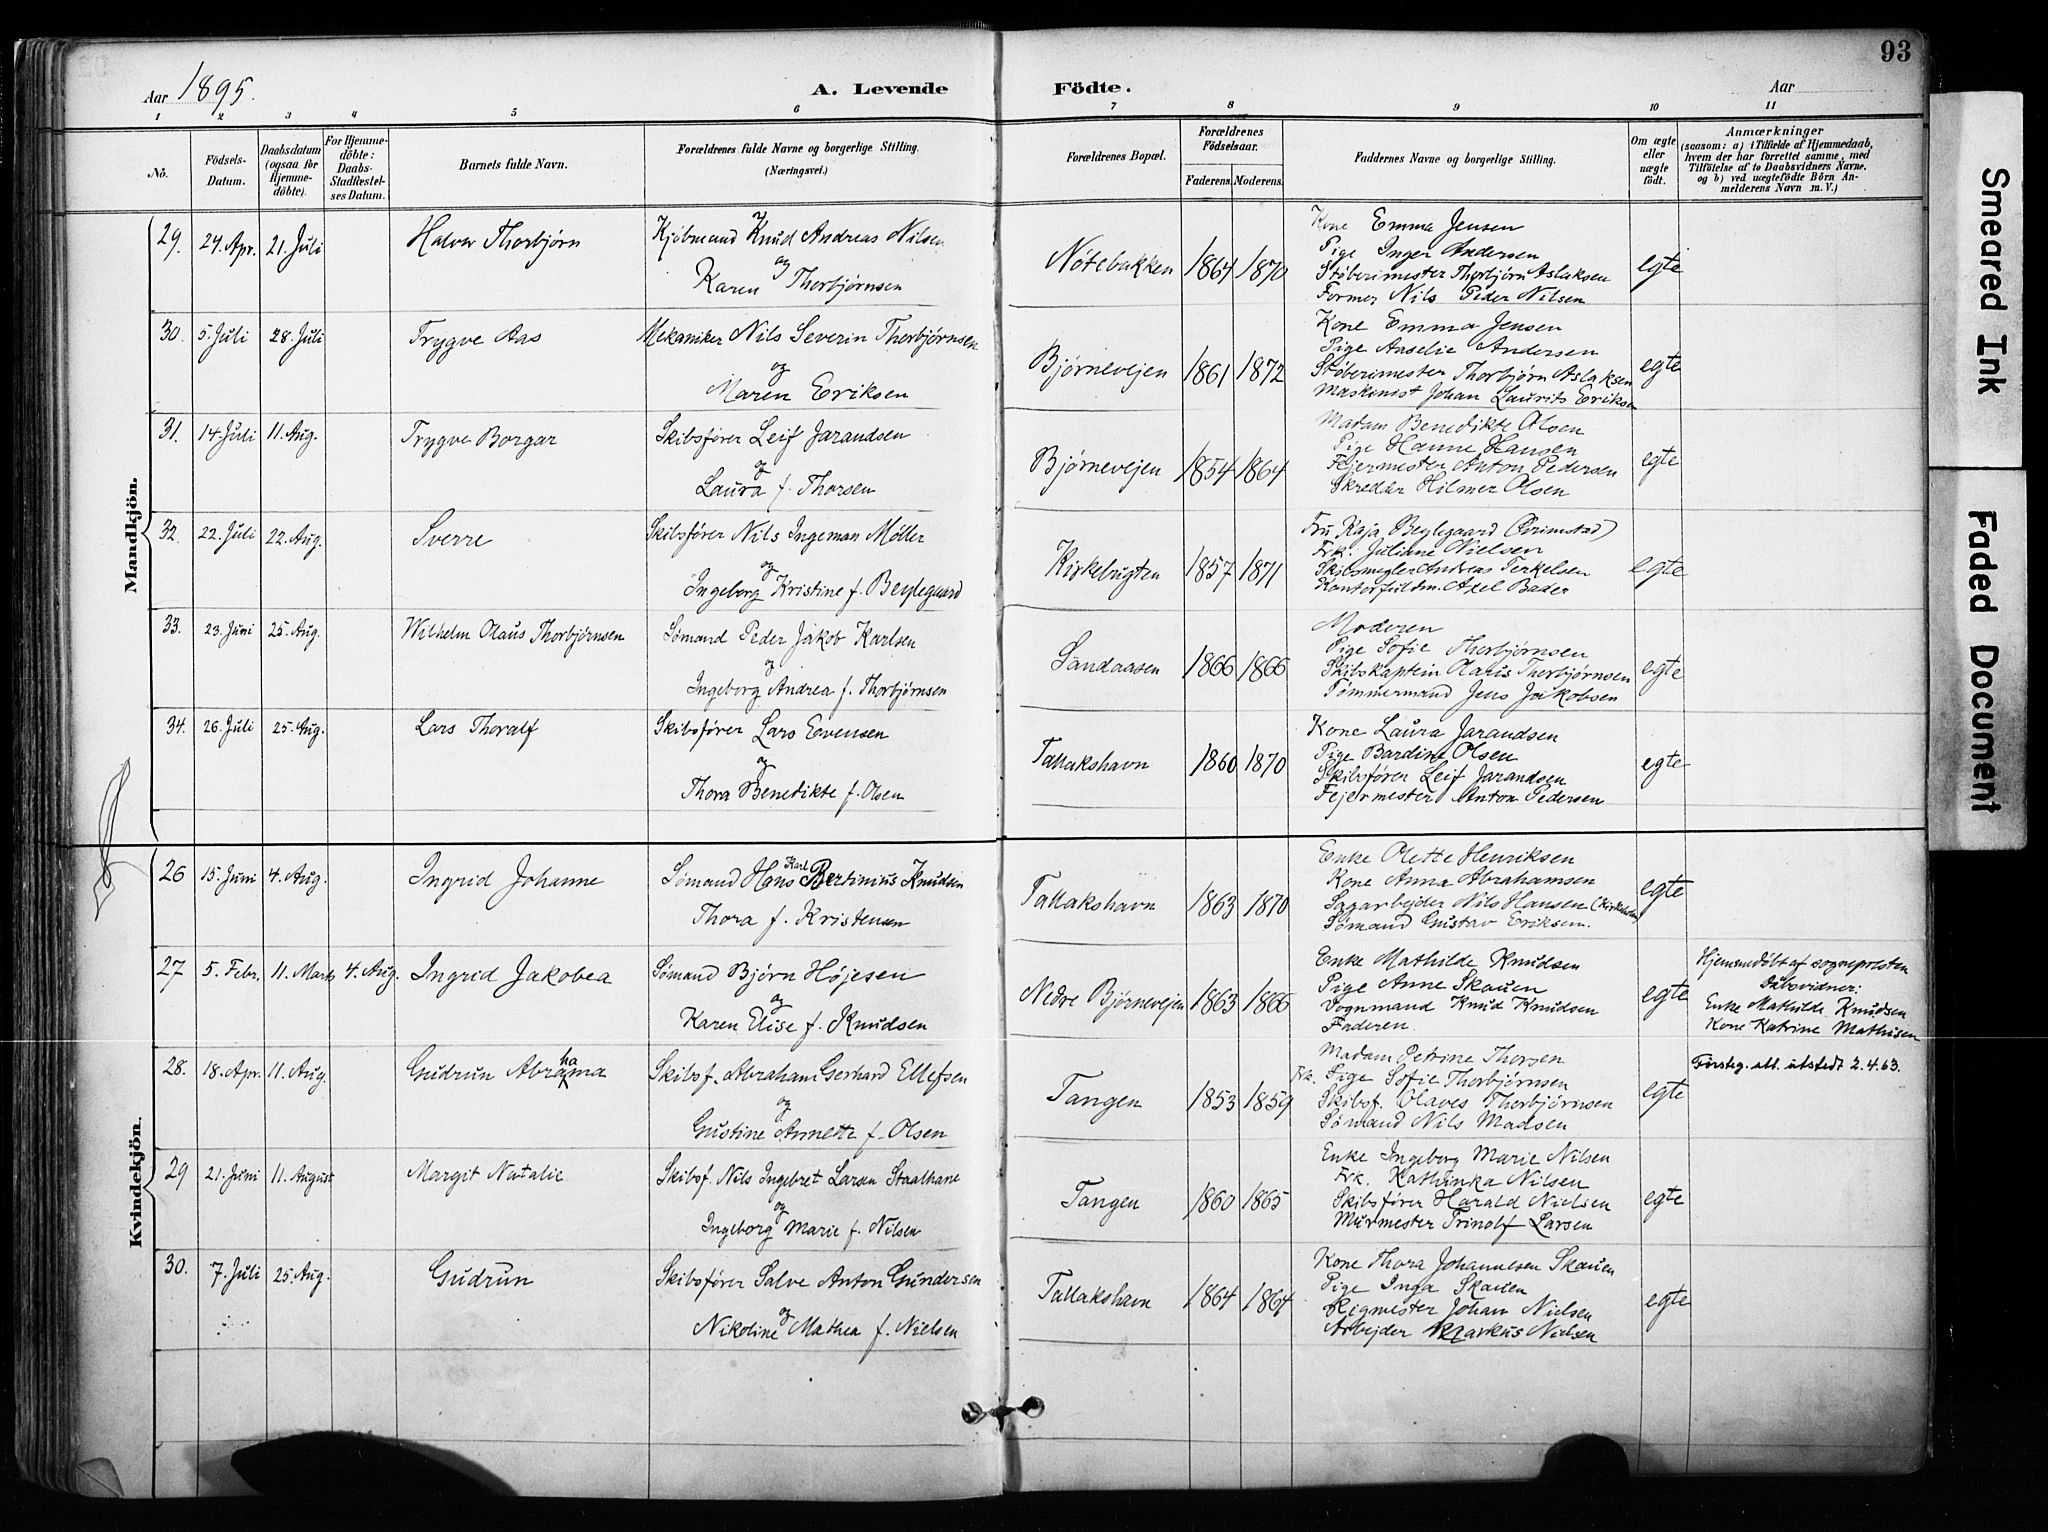 93
Aar 1895.
A. Levende Födte.
Aar
1 2 3 4 5 6 7 8 9 10 11
No.
Födsels-Datum.
Daabsdatum (ogsaa for Hjemme-döbte).
For Hjemme-döbte: Daabs-Stadfæstel-ses Datum.
Barnets fulde Navn.
Forældrenes fulde Navne og borgerlige Stilling.
(Næringsvei.)
Forældrenes Bopæl.
Forældrenes Födselsaar.
Faderens. Moderens.
Faddernes Navne og borgerlige Stilling.
Om ægte eller uægte födt.
Anmærkninger
(saasom: a) i Tilfælde af Hjemmedaab,
hvem der har forrettet samme, med
Tilföielse af to Daabsvidners Navne,
og b) ved uægtefödte Börn An-
melderens Navn m. V.)
Mandkjön.
29. 24. Apr. 21. Juli Halvor Thorbjørn Kjøbmand Knud Andreas Nilsen
og
Karen Thorbjørnsen
Nøtebakken 1864 1870
Kone Emma Jensen
Pige Inger Andersen
Støberimester Thorbjørn Aslaksen
Former Nils Peder Nilsen
egte
30. 5. Juli 28. Juli Trygve Aas Mekaniker Nils Severin Thorbjørnsen
og
Maren Eriksen
Bjørnevejen 1861 1872
Kone Emma Jensen
Pige Anselie Andersen
Støberimester Thorbjørn Aslaksen
Maskinist Johan Laurits Eriksen
egte
31. 14. Juli 11. Aug. Trygve Borgar Skibsfører Leif Jarandsen
og
Laura f. Thorsen
Bjørnevejen 1854 1864
Madam Benedikte Olsen
Pige Hanne Hansen
Fejermester Anton Pedersen
Skredder Hilmer Olsen
egte
32. 22. Juli 22. Aug. Sverre Skibsfører Nils Ingeman Møller
og
Ingeborg Kristine f. Beylegaard
Kirkebugten 1857 1871
Fru Kaja Beylegaard (Grimstad)
Frk. Juliane Nielsen
Skibsmegler Andreas Terkelsen
Kontorfuldm. Axel Bader
egte
33. 23. Juni 25. Aug. Wilhelm Olaus Thorbjørnsen Sømand Peder Jakob Karlsen
og
Ingeborg Andrea f. Thorbjørnsen
Sandaasen 1866 1866
Moderen
Pige Sofie Thorbjørnsen
Skibskaptein Olaus Thorbjørnsen
Tømmermand Jens Jakobsen
egte
34. 26. Juli 25. Aug. Lars Thoralf Skibsfører Lars Evensen
og
Thora Benedikte f. Olsen
Tallakshavn 1860 1870
Kone Laura Jarandsen
Pige Bardine Olsen
Skibsfører Leif Jarandsen
Fejermester Anton Pedersen
egte
Kvindekjön.
26 15. Juni 4. Aug. Ingrid Johanne Sømand Hans Karl Bertinius Knudsen
Thora f. Kristensen
Tallakshavn 1863 1870
Enke Olette Henriksen
Kone Anna Abrahamsen
Sagarbejder Nils Hansen
Sømand Gustav Eriksen.
egte
27 5. Febr. 11. Marts 4. Aug. Ingrid Jakobea Sømand Bjørn Højesen
og
Karen Elise f. Knudsen
Nedre Bjørnevejen 1863 1866
Enke Mathilde Knudsen
Pige Anne Skauen
Vognmand Knud Knudsen
Faderen.
egte
Hjemmedøbt af sognepresten
Dåbsvidner:
Enke Mathilde Knudsen
Kone Katrine Mathisen
28. 18. Apr. 11. Aug. Gudrun Abrahama Skibsf. Abraham Gerhard Ellefsen
og
Gustine Annette f. Olsen
Tangen 1853 1859
Madam Petrine Thorsen
Frk. Pige Sofie Thorbjørnsen
Skibsf. Olaves Thorbjørnsen
Sømand Nils Madsen
egte
Førsteg. att. utstedt 2.4.63.
29 21. Juni 11. August Margit Natalie Skibsf. Nils Ingebret Larsen Staalhane
og
Ingeborg Marie f. Nilsen
Tangen 1860 1865
Enke Ingeborg Marie Nilsen
Frk. Kathinka Nilsen
Skibsfører Harald Nielsen
Murmester Trinolf Larsen
egte
30. 7. Juli 25. Aug. Gudrun Skibsfører Salve Anton Gundersen
og
Nikoline Mathea f. Nielsen
Tallakshavn 1864 1864
Kone Thora Johannesen Skauen
Pige Inga Skauen
Rigmester Johan Nielsen
Arbejder Markus Nielsen
egte
Smeared Ink
Faded Document